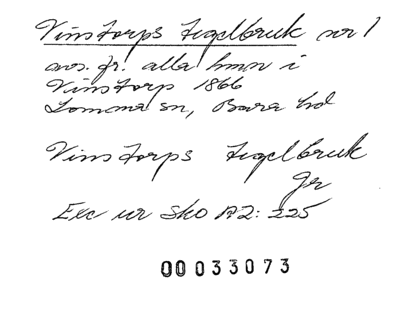 Vinstorps tegelbruk nr 1
avs. fr. alla hmn i
Vinstorp 1866
Lomma sn, Bara hd
Vinstorps tegelbruk
Gr
Exc ur Sko A2: 225
00033073